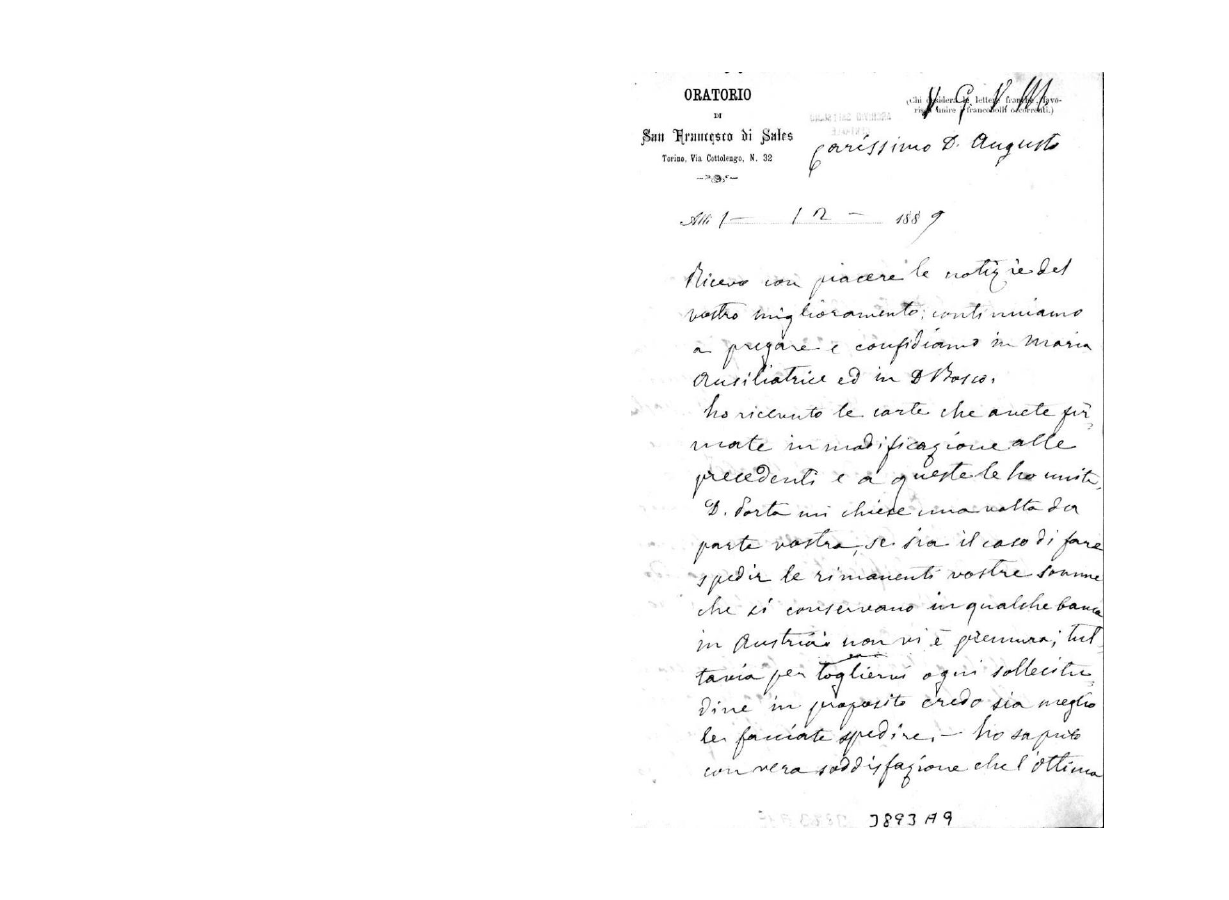 ORATORIO
DI
San Francesco di Sales
Torino, Via Cottolengo, N. 32
(Chi desidera le lettere franche, favo-
risca unire i francobolli occorrenti.)
V. G. V. M.
Carissimo D. Augusto
Alli 1 — 12 — 1889
Ricevo con piacere le notizie del
vostro miglioramento; continuiamo
a pregare e confidiamo in Maria
Ausiliatrice ed in D Bosco.
ho ricevuto le carte che avete fir-
mate in modificazione alle
precedenti e a queste le ho unite.
D. mi chiese una volta da
parte vostra, se sia il caso di fare
spedir le rimanenti vostre somme
che si conservano in qualche banca
in Austria: non vi è premura; tut-
tavia per togliervi ogni sollecitu-
dine in proposito credo sia meglio
le facciate spedire. — ho saputo
con vera soddisfazione che l'ottima
J893A9